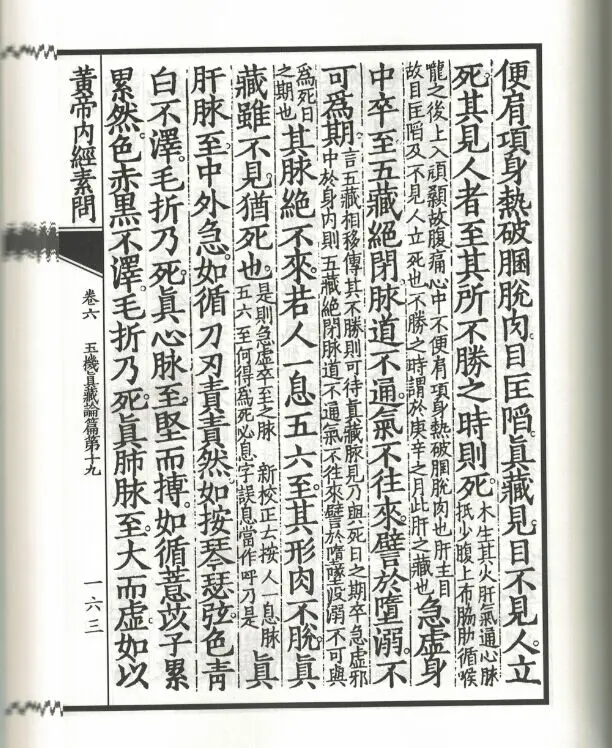 便肩項身熱破䐃脫肉。目匡䧟。眞藏見。目不見人。立
死。其見人者。至其所不勝之時則死。木生其火肝氣通心脉抵少腹上布脇肋循喉
嚨之後上入頏顙故腹痛心中不便肩項身熱破䐃脫肉也肝主目故目匡䧟及不見人立死也不勝之時謂於庚辛之月此肝之藏也急虛身
中卒至。五藏絕閉。脉道不通。氣不往來。譬於墮溺。不
可爲期。言五藏相移傳其不勝則可待眞藏脉見乃與死日之期卒急虛邪中於身內則五藏絕閉脉道不通氣不往來譬於墮墜没溺不可與
爲死日之期也其脉絕不來。若人一息五六至。其形肉不脫。眞
藏雖不見。猶死也。是則急虛卒至之脉 新校正云按人一息脉五六至何得爲死必息字誤息當作呼乃是眞
肝脉至。中外急。如循刀刃責責然。如按琴瑟弦。色靑
白不澤。毛折乃死。眞心脉至。堅而搏。如循薏苡子累
累然。色赤黑不澤。毛折乃死。眞肺脉至。大而虛。如以
黃帝內經素問
卷六 玉機眞藏論篇第十九
一六三